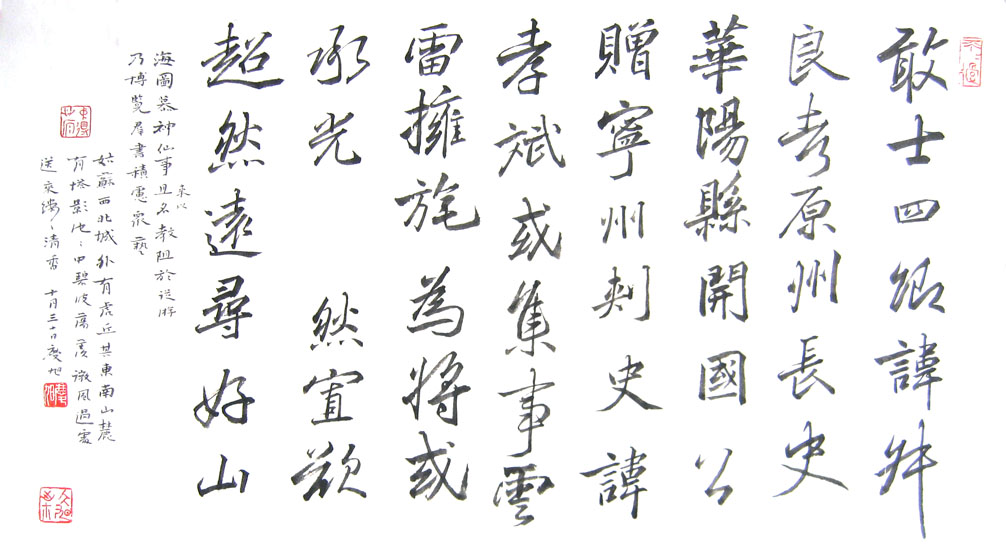 敢士四卿諱
良考原州長史
華陽縣開國公
贈寧州刺史諱
孝斌或集事雲
雷擁旄為將或
承光 然宦欲
超然遠尋好山
來以
海圖慕神仙事且名教阻於從游
乃博覽群書積慮眾藝
姑蘇西北城外有虎丘其東南山麓
有塔影池〻中碧波蕩漾微風過處
送來縷〻清香 十月三十日慶旭